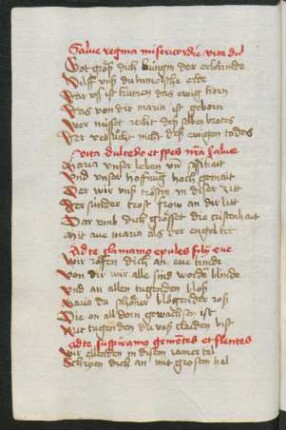 Salue regina misericordie vita dul
Got grös dich küngin der erbärmde
Hilff vnß du himelsche erde
Dar vß ist
Das von dir maria ist geborn
Wer nüsset recht des selben brotes
Der verdirbt nicht des ewigen todes
Vita dulcedo et spes nra salue
Maria vnser leben vnd süssikeit
Vnd vnser hofnung hoch gemait
Der wir vnß trösten in diser zitt
Der sünder trost frow an dir litt
Dar vmb dich grüsset die cristenhait
Mit aue maria als der engel seit
Ad te clamamus exules filij eue
Wir rüffen dich an eue kinde
Von dir wir alle sind worden blinde
Vnd an allen tugenden bloß
Maria du schöner blügender roß
Die on all dorn gewachsen ist
Mit tugenden du vns claiden bist
Ad te suspiramus gementes et flentes
Wir ellenden in disem iamer tal
Schryen dich an mit grosem hal